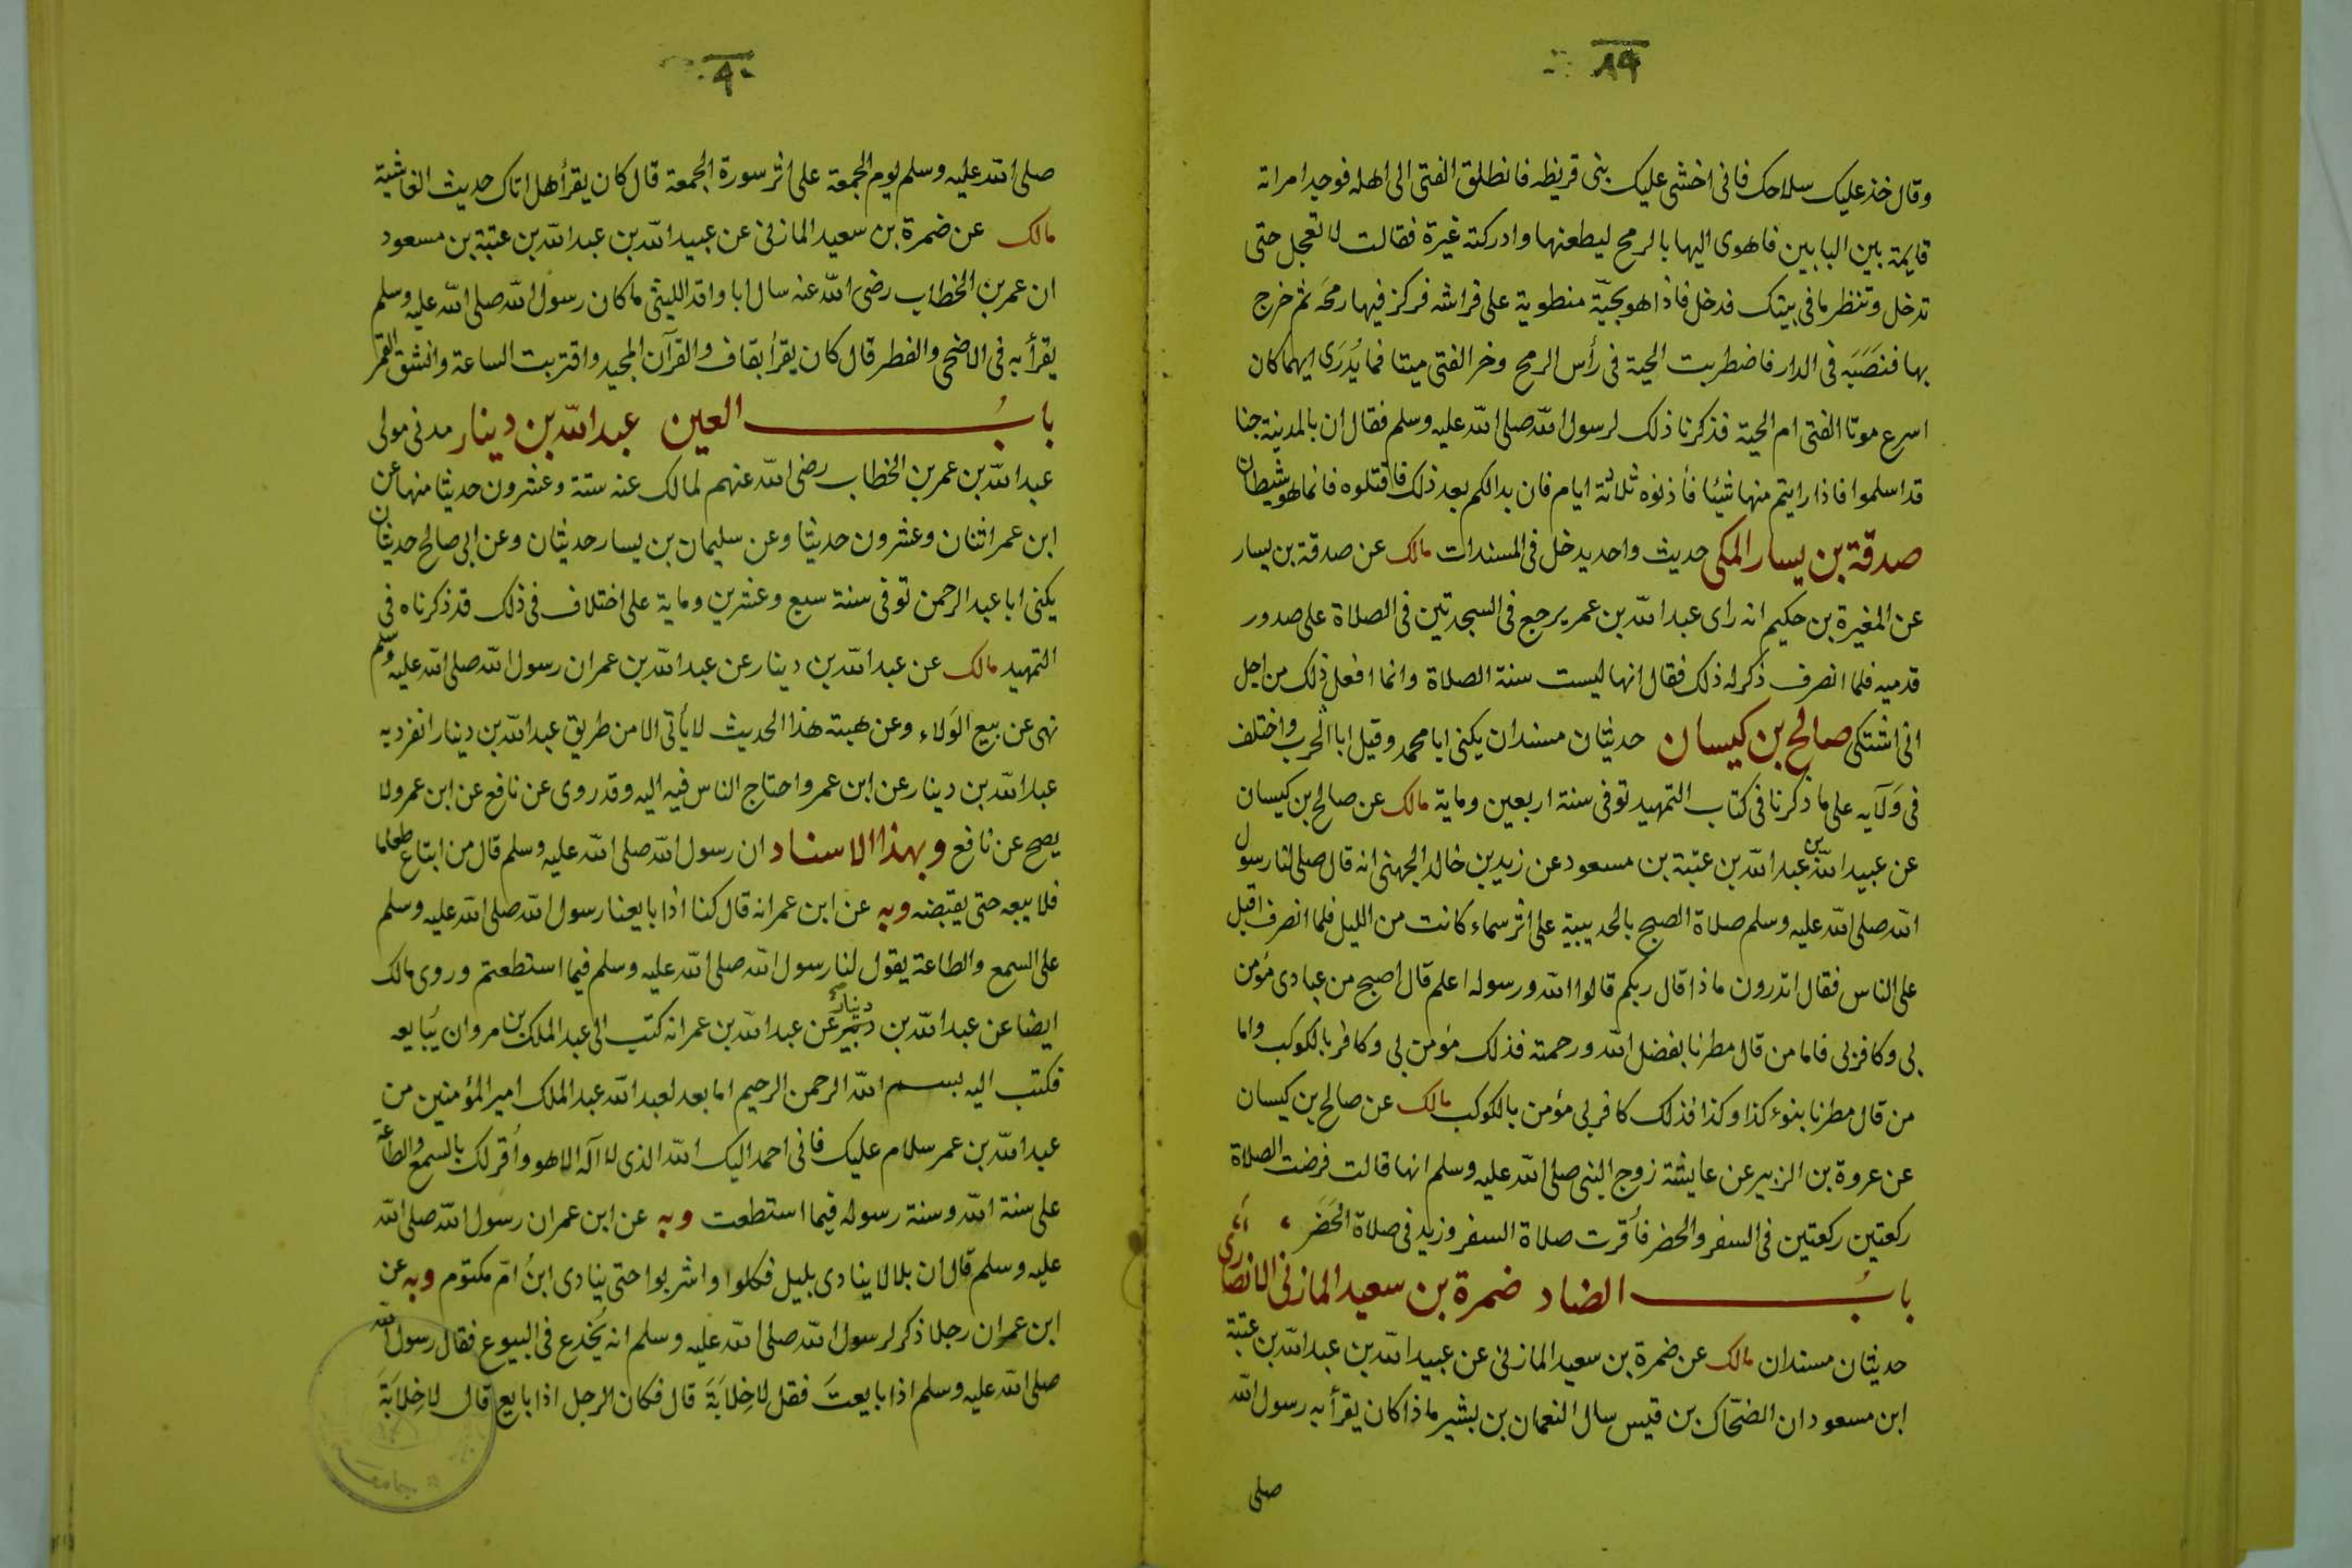 ٨٩
وقال خذ عليك سلاحك فانى اخشى عليك بنى قريظه فانطلق الفتى الى اهله فوجد امراته
قايمة بين البابين فاهوى اليها بالرمح ليطعنها وادركته غيرة فقالت لا تعجل حتى
تدخل وتنظر ما فى بيتك فدخل فاذا هو بحيّة منطوية على فراشه فركز فيها رمحَه ثم خرج
بها فنصَبَه فى الدار فاضطربت الحية فى رأس الرمح وخر الفتى ميتا فما يُدرَى ايهما كان
اسرع موتا الفتى ام الحية فذكرنا ذلك لرسول الله صلى الله عليه وسلم فقال ان بالمدينة جنا
قد اسلموا فاذا رايتم منها شيئا فأذنوه ثلاثة ايام فان بدا لكم بعد ذلك فاقتلوه فانما هو شيطان
صدقة بن يسار المكى حديث واحد يدخل فى المسندات مالك عن صدقة بن يسار
عن المغيرة بن حكيم انه راى عبد الله بن عمر يرجع فى السجدتين فى الصلاة على صدور
قدميه فلما انصرف ذكر له ذلك فقال انها ليست سنة الصلاة وانما افعل ذلك من اجل
انى اشتكى صالح بن كيسان حديثان مسندان يكنى ابا محمد وقيل ابا الحرب واختلف
فى وَلآيه على ما ذكرنا فى كتاب التمهيد توفى سنة اربعين وماية مالك عن صالح بن كيسان
عن عبيد الله بن عبد الله بن عتبة بن مسعود عن زيد بن خالد الجهنى انه قال صلى لنا رسول
الله صلى الله عليه وسلم صلاة الصبح بالحديبية على اثر سماء كانت من الليل فلما انصرف اقبل
على الناس فقال اتدرون ما ذا قال ربكم قالوا الله ورسوله اعلم قال اصبح من عبادى مؤمن
بى وكافر بى فاما من قال مطرنا بفضل الله ورحمته فذلك مؤمن بى وكافر بالكوكب واما
من قال مطرنا بنوء كذا وكذا فذلك كافر بى مؤمن بالكوكب مالك عن صالح بن كيسان
عن عروة بن الزبير عن عايشة زوج النبى صلى الله عليه وسلم انها قالت فرضت الصلاة
ركعتين ركعتين فى السفر والحضر فأقرت صلاة السفر وزيد فى صلاة الحَضَر
بابُ الضاد ضمرة بن سعيد المازنى الانصارى
حديثان مسندان مالك عن ضمرة بن سعيد المازنى عن عبيد الله بن عبد الله بن عتبة
ابن مسعود ان الضحّاك بن قيس سال النعمان بن بشير ماذا كان يقرأ به رسول الله
صلى
٩٠
صلى الله عليه وسلم يوم الجمعة على اثر سورة الجمعة قال كان يقرأ هل اتاك حديث الغاشية
مالك عن ضمرة بن سعيد المازنى عن عبيد الله بن عبد الله بن عتبة بن مسعود
ان عمر بن الخطاب رضى الله عنه سال ابا واقد الليثى ما كان رسول الله صلى الله عليه وسلم
يقرأ به فى الاضحى والفطر قال كان يقرأ بقاف والقرآن المجيد واقتربت الساعة وانشق القمر
بابُ العين عبد الله بن دينار مدنى مولى
عبد الله بن عمر بن الخطاب رضى الله عنهم لمالك عنه ستة وعشرون حديثا منها عن
ابن عمر اثنان وعشرون حديثا وعن سليمان بن يسار حديثان وعن ابى صالح حديثان
يكنى ابا عبد الرحمن توفى سنة سبع وعشرين وماية على اختلاف فى ذلك قد ذكرناه فى
التمهيد مالك عن عبد الله بن دينار عن عبد الله بن عمر ان رسول الله صلى الله عليه وسلم
نهى عن بيع الوَلاء وعن هبته هذا الحديث لا يأتى الا من طريق عبد الله بن دينار انفرد به
عبد الله بن دينار عن ابن عمر واحتاج الناس فيه اليه وقد روى عن نافع عن ابن عمر ولا
يصح عن نافع وبهذا الاسناد ان رسول الله صلى الله عليه وسلم قال من ابتاع طعاما
فلا يبعه حتى يقبضه وبه عن ابن عمر انه قال كنا اذا بايعنا رسول الله صلى الله عليه وسلم
على السمع والطاعة يقول لنا رسول الله صلى الله عليه وسلم فيما استطعتم وروى مالك
ايضا عن عبد الله بن دينار عن عبد الله بن عمر انه كتب الى عبد الملك بن مروان يُبايعه
فكتب اليه بسم الله الرحمن الرحيم اما بعد لعبد الله عبد الملك امير المؤمنين من
عبد الله بن عمر سلام عليك فانى احمد اليك الله الذى لا آله الا هو وأقر لك بالسمع والطاعة
على سنة الله وسنة رسوله فيما استطعت وبه عن ابن عمر ان رسول الله صلى الله
عليه وسلم قال ان بلالا ينادى بليل فكلوا واشربوا حتى ينادى ابنُ امّ مكتوم وبه عن
ابن عمر ان رجلا ذكر لرسول الله صلى الله عليه وسلم انه يُخدع فى البيوع فقال رسول الله
صلى الله عليه وسلم اذا بايعتَ فقل لا خِلابَةَ قال فكان الرجل اذا بايع قال لا خِلابَةَ